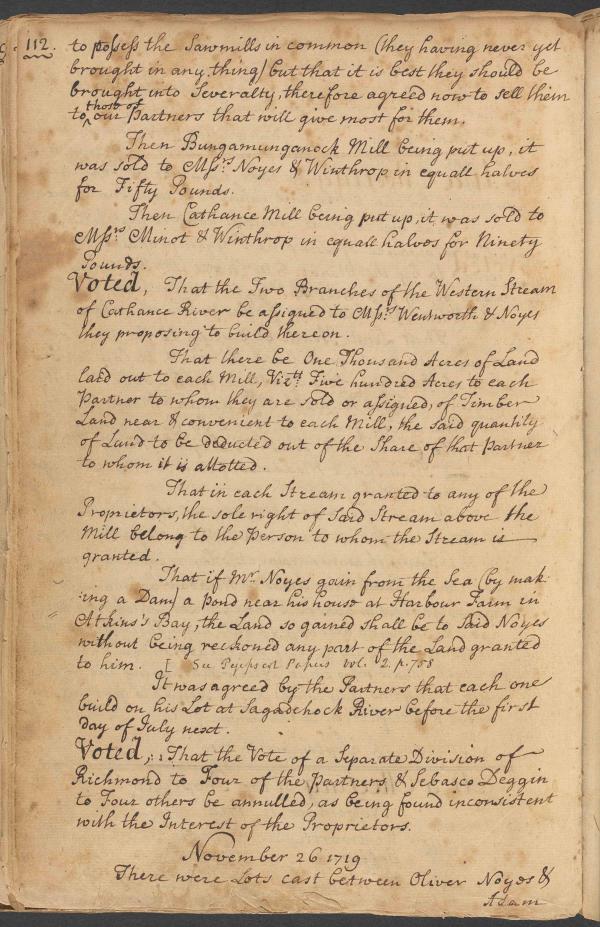 112.
to possess the Sawmills in common (they having never yet
brought in any thing) but that it is best they should be
brought into Severalty, therefore agreed now to sell them
to those of our Partners that will give most for them.
Then Bungamunganock Mill being put up, it
was sold to Mssrs. Noyes & Winthrop in equall halves
for Fifty Pounds.
Then Cathance Mill being put up, it was sold to
Mssrs. Minot & Winthrop in equall halves for Ninety
Pounds.
Voted, That the Two Branches of the Western Stream
of Cathance River be assigned to Mssrs. Wentworth & Noyes
they proposing to build thereon.
That there be One Thousand Acres of Land
laid out to each Mill, Vizt. Five hundred Acres to each
Partner to whom they are sold or assigned, of Timber
Land near & convenient to each Mill, the said quantity
of Land to be deducted out of the Share of that Partner
to whom it is allotted.
That in each Stream granted to any of the
Proprietors, the sole right of said Stream above the
Mill belong to the Person to whom the Stream is
granted.
That if Mr. Noyes gain from the Sea (by mak-
:ing a Dam) a pond near his house at Harbour Farm in
Atkins's Bay, the Land so gained shall be to said Noyes
without being reckoned any part of the Land granted
to him. [ See Pejepscot Papers vol. 2. p. 758
It was agreed by the Partners that each one
build on his Lot at Sagadehock River before the first
day of July next.
Voted, :: That the Vote of a Separate Division of
Richmond to Four of the partners & Sebasco Deggin
to Four others be annulled, as being found inconsistent
with the Interest of the Proprietors.
November 26 1719
There were Lots cast between Oliver Noyes &
Adam